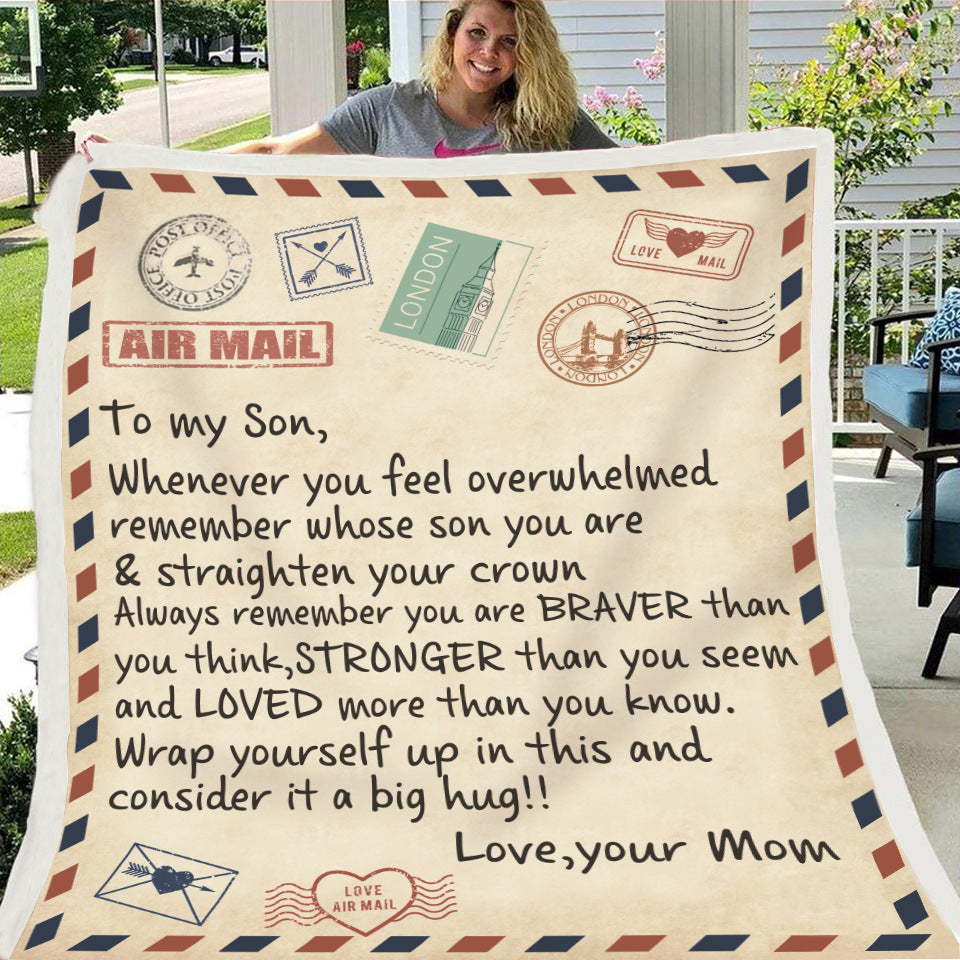 POST OFFICE POST OFFICE
LONDON
LOVE MAIL
AIR MAIL
LONDON LONDON LONDON LONDON
To my Son,
Whenever you feel overwhelmed
remember whose son you are
& straighten your crown
Always remember you are BRAVER than
you think,STRONGER than you seem
and LOVED more than you know.
Wrap yourself up in this and
consider it a big hug!!
Love,your Mom
LOVE
AIR MAIL